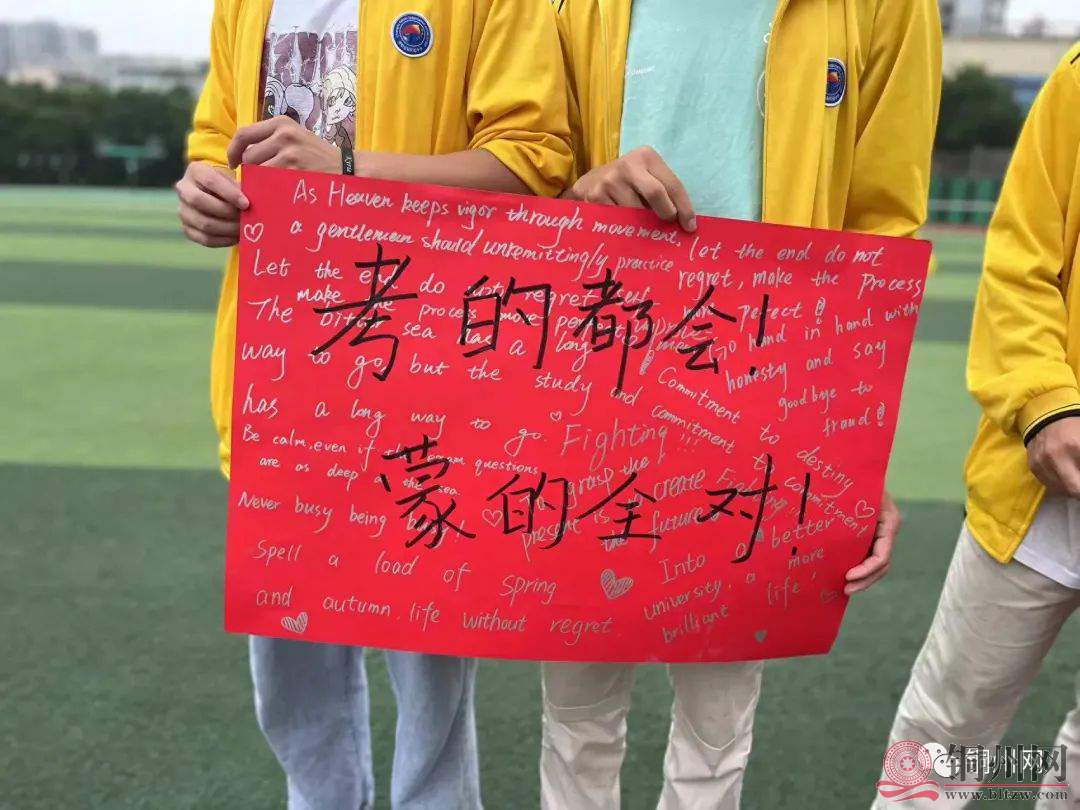 As Heaven keeps vigor through movement,
a gentleman should unremittingly practice
let the end do not
regret, make the process
perfect!
Let the end do note regret
make the process more
The bitter sea has a long
way to go, but the study and commitment
has a long way to go.
Go hand in hand with
honesty and say
goodbye to
fraud!
考的都会!
Commitment to destiny
commitment to commitment
Fighting!!!
Be calm, even if the exam questions
are as deep a the sea.
grasp the
present is create
the future
Fighting
蒙的全对!
Never busy being
Spell a load of spring
and autumn, life without regret
Into a better
university, a more
brilliant life!
锏州网
www.bltzw.com